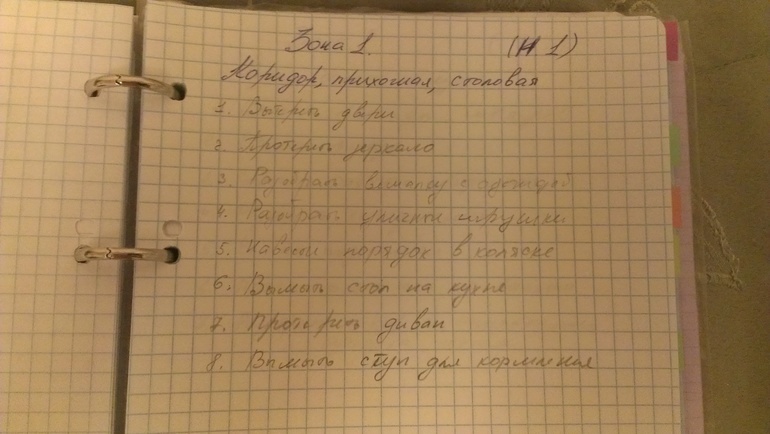 Зона 1. (Н 1)
Коридор, прихожая, столовая
1. Вытереть двери
2. Протереть зеркало
3. Разобрать с одеждой
4. Разобрать уличные игрушки
5. Навести порядок в коляске
6. Вымыть стол на кухне
7. Протереть диван
8. Вымыть стул для кормления